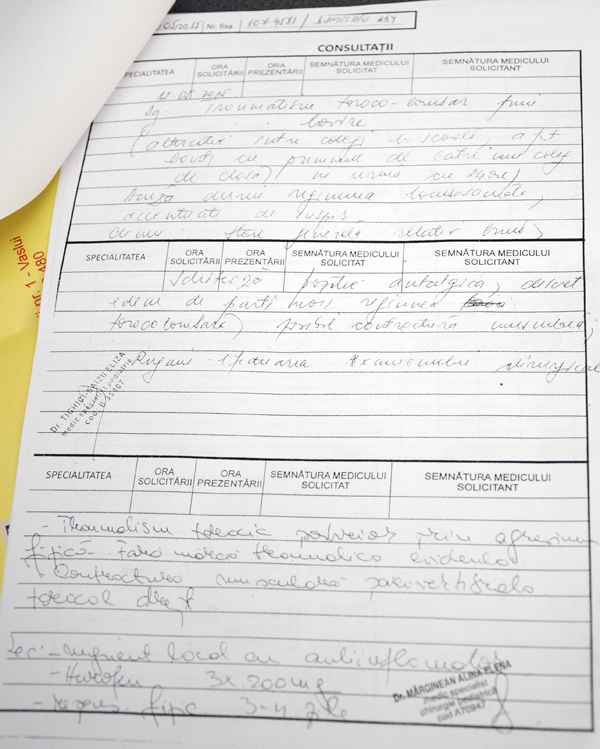 05/2015 Nr. fisa 1074581 / DUMITRIU
CONSULTAȚII
SPECIALITATEA ORA SOLICITĂRII ORA PREZENTĂRII SEMNĂTURA MEDICULUI SOLICITAT SEMNĂTURA MEDICULUI SOLICITANT
2015
Dg. Traumatism toraco-lombar prin
lovire
(altercație intre colegi la scoală, a fost
lovit cu pumnul de către un coleg
de clasă, in urma cu 24 ore)
Acuză dureri regiunea lombosacrata,
accentuate de
stare generala relativ bună,
SPECIALITATEA ORA SOLICITĂRII ORA PREZENTĂRII SEMNĂTURA MEDICULUI SOLICITAT SEMNĂTURA MEDICULUI SOLICITANT
schițează poziție antalgica, discret
edem de parti moi regiunea
toracolombara, posibil contractură musculară,
Rugam efectuarea examenului chirurgical
Dr. ELIZA
medic specialist pediatrie
nr. 1 - Vaslui
480
SPECIALITATEA ORA SOLICITĂRII ORA PREZENTĂRII SEMNĂTURA MEDICULUI SOLICITAT SEMNĂTURA MEDICULUI SOLICITANT
- Traumatism toracic posterior prin agresiune
fizică - Fără marcă traumatică evidentă
- Contractura musculară paravertebrala
toracal drept
Rec: - unguent local cu antiinflamator
- Nurofen 3x200mg
- repaus fizic 3-4 zile
Dr. MĂRGINEAN ALINA ELENA
medic specialist
chirurgie pediatrică
cod A70947